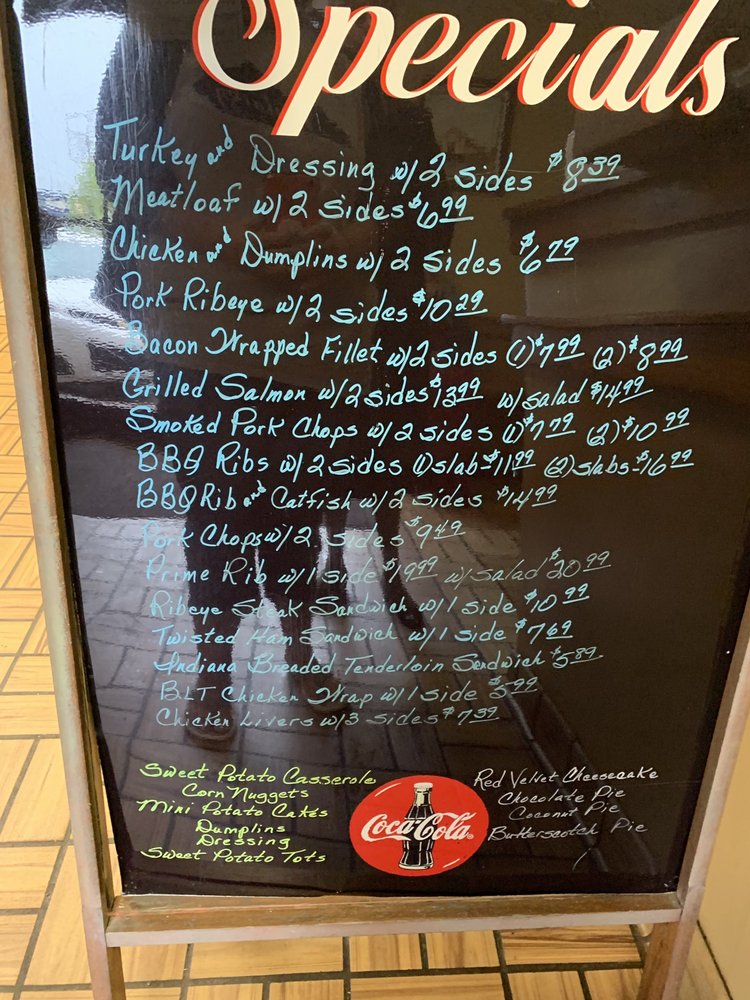 Specials
Turkey and Dressing w/ 2 sides $8.39
Meatloaf w/ 2 sides $6.99
Chicken and Dumplins w/ 2 sides $6.79
Pork Ribeye w/ 2 sides $10.29
Bacon Wrapped Fillet w/ 2 sides (1) $7.99 (2) $8.99
Grilled Salmon w/ 2 sides $13.99 w/ salad $14.99
Smoked Pork Chops w/ 2 sides (1) $7.79 (2) $10.99
BBQ Ribs w/ 2 sides (1) slab - $11.99 (2) slabs - $16.99
BBQ Rib and Catfish w/ 2 sides $14.99
Pork Chops w/ 2 sides $9.49
Prime Rib w/ 1 side $19.99 w/ salad $20.99
Ribeye Steak Sandwich w/ 1 side $10.99
Twisted Ham Sandwich w/ 1 side $7.69
Indiana Breaded Tenderloin Sandwich $5.89
BLT Chicken Wrap w/ 1 side $5.99
Chicken Livers w/ 3 sides $7.39
Sweet Potato Casserole
Corn Nuggets
Mini Potato Cakes
Dumplins
Dressing
Sweet Potato Tots
Coca-Cola
Red Velvet Cheesecake
Chocolate Pie
Coconut Pie
Butterscotch Pie